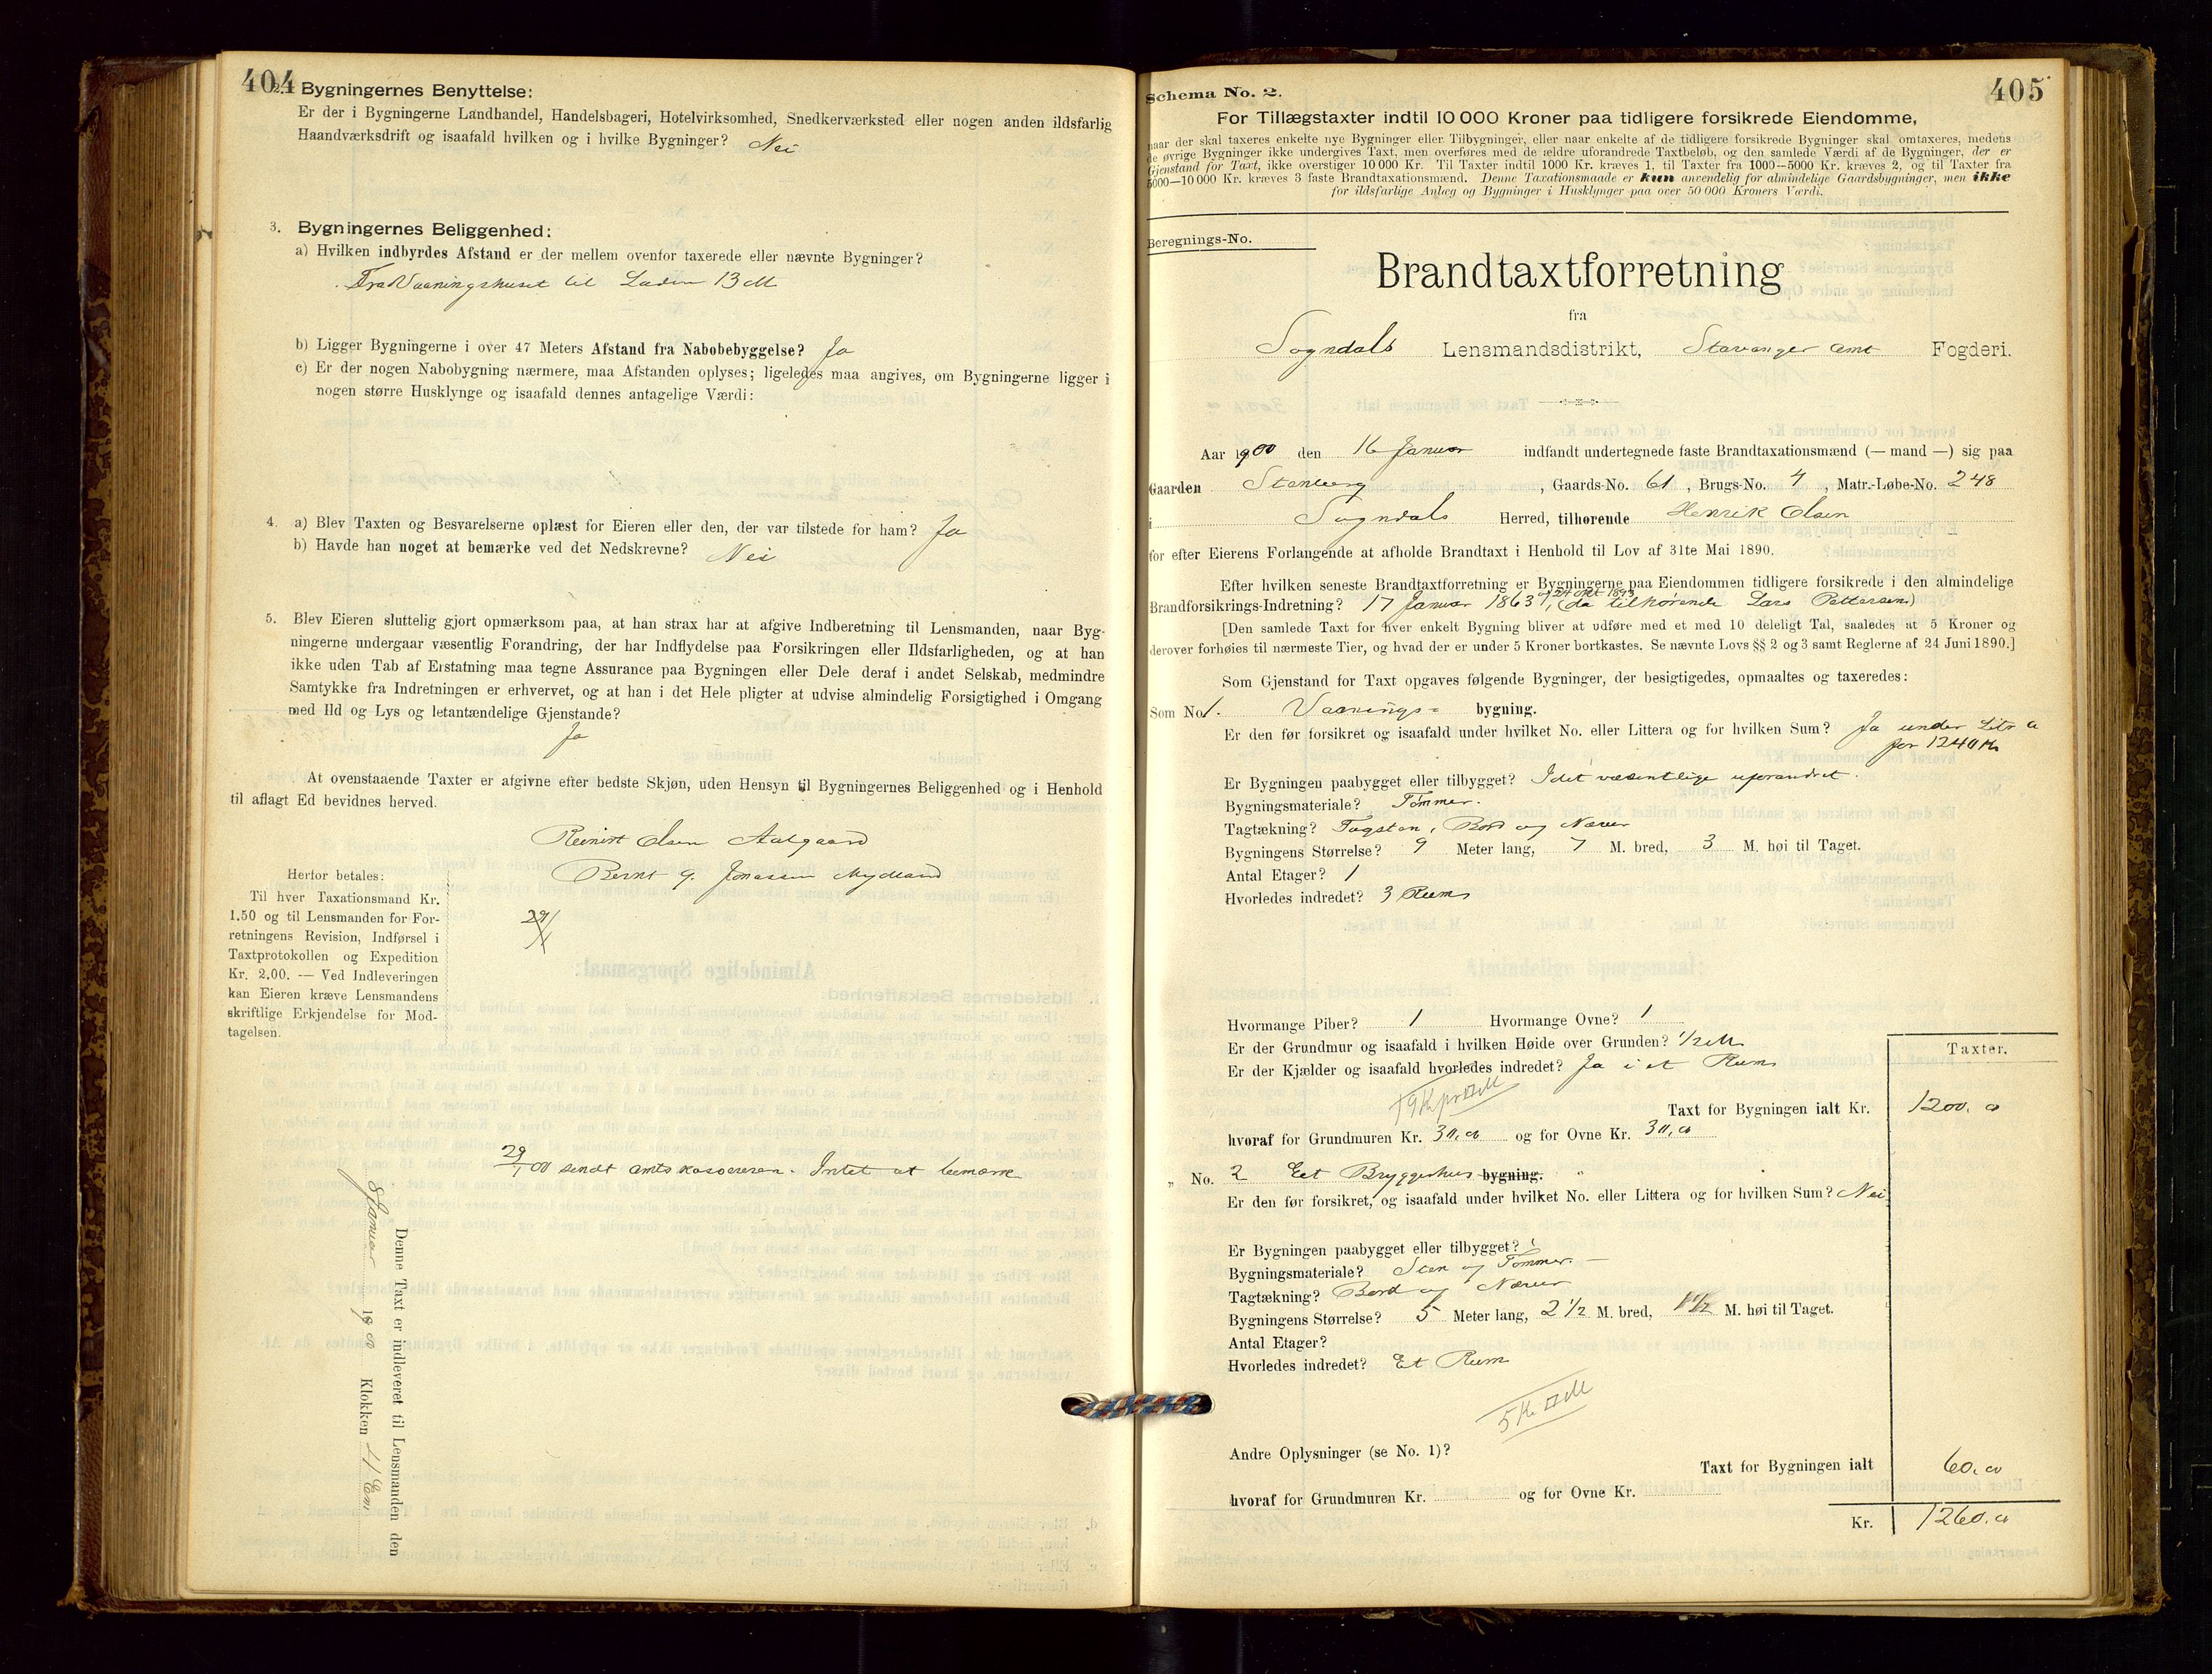 404
2. Bygningernes Benyttelse:
Er der i Bygningerne Landhandel, Handelsbageri, Hotelvirksomhed, Snedkerværksted eller nogen anden ildsfarlig
Haandværksdrift og isaafald hvilken og i hvilke Bygninger? Nei
3. Bygningernes Beliggenhed:
a) Hvilken indbyrdes Afstand er der mellem ovenfor taxerede eller nævnte Bygninger?
Fra Vaaningshuset til Laden 13 M
b) Ligger Bygningerne i over 47 Meters Afstand fra Nabobebyggelse? Ja
c) Er der nogen Nabobygning nærmere, maa Afstanden oplyses; ligeledes maa angives, om Bygningerne ligger i
nogen større Husklynge og isaafald dennes antagelige Værdi:
4. a) Blev Taxten og Besvarelserne oplæst for Eieren eller den, der var tilstede for ham? Ja
b) Havde han noget at bemærke ved det Nedskrevne? Nei
5. Blev Eieren sluttelig gjort opmærksom paa, at han strax har at afgive Indberetning til Lensmanden, naar Byg-
ningerne undergaar væsentlig Forandring, der har Indflydelse paa Forsikringen eller Ildsfarligheden, og at han
ikke uden Tab af Erstatning maa tegne Assurance paa Bygningen eller Dele deraf i andet Selskab, medmindre
Samtykke fra Indretningen er erhvervet, og at han i det Hele pligter at udvise almindelig Forsigtighed i Omgang
med Ild og Lys og letantændelige Gjenstande?
Ja
At ovenstaaende Taxter er afgivne efter bedste Skjøn, uden Hensyn til Bygningernes Beliggenhed og i Henhold
til aflagt Ed bevidnes herved.
Reinert Olsen Aalgaard
Bernt G. Jonassen Mydland
29/1
Herfor betales:
Til hver Taxationsmand Kr.
1.50 og til Lensmanden for For-
retningens Revision, Indførsel i
Taxtprotokollen og Expedition
Kr. 2.00. — Ved Indleveringen
kan Eieren kræve Lensmandens
skriftlige Erkjendelse for Mod-
tagelsen.
29/1 00 sendt amtskassereren. Intet at bemærke
Denne Taxt er indleveret til Lensmanden den
Januar 1900 Klokken 4 Em
405
Schema No. 2.
For Tillægstaxter indtil 10 000 Kroner paa tidligere forsikrede Eiendomme,
naar der skal taxeres enkelte nye Bygninger eller Tilbygninger, eller naar enkelte af de tidligere forsikrede Bygninger skal omtaxeres, medens
de øvrige Bygninger ikke undergives Taxt, men overføres med de ældre uforandrede Taxtbeløb, og den samlede Værdi af de Bygninger, der er
Gjenstand for Taxt, ikke overstiger 10 000 Kr. Til Taxter indtil 1000 Kr. kræves 1, til Taxter fra 1000—5000 Kr. kræves 2, og til Taxter fra
5000—10 000 Kr. kræves 3 faste Brandtaxationsmænd. Denne Taxationsmaade er kun anvendelig for almindelige Gaardsbygninger, men ikke
for ildsfarlige Anlæg og Bygninger i Husklynger paa over 50 000 Kroners Værdi.
Beregnings-No.
Brandtaxtforretning
fra
Sogndals Lensmandsdistrikt, Stavanger amt Fogderi.
Aar 1900 den 16 Januar indfandt undertegnede faste Brandtaxationsmænd (— mand —) sig paa
Gaarden Stenberg, Gaards-No. 61, Brugs-No. 4, Matr.-Løbe-No. 248
i Sogndals Herred, tilhørende Henrik Olsen
for efter Eierens Forlangende at afholde Brandtaxt i Henhold til Lov af 31te Mai 1890.
Efter hvilken seneste Brandtaxtforretning er Bygningerne paa Eiendommen tidligere forsikrede i den almindelige
Brandforsikrings-Indretning? 17 Januar 1863 og 24 okt 1893 (da tilhørende Lars Pettersen)
[Den samlede Taxt for hver enkelt Bygning bliver at udføre med et med 10 deleligt Tal, saaledes at 5 Kroner og
derover forhøies til nærmeste Tier, og hvad der er under 5 Kroner bortkastes. Se nævnte Lovs §§ 2 og 3 samt Reglerne af 24 Juni 1890.]
Som Gjenstand for Taxt opgaves følgende Bygninger, der besigtigedes, opmaaltes og taxeredes:
Som No. 1. Vaanings= bygning.
Er den før forsikret og isaafald under hvilket No. eller Littera og for hvilken Sum? Ja under Litr a
for 1240 Kr
Er Bygningen paabygget eller tilbygget? I det væsentlige uforandret.
Bygningsmateriale? Tømmer.
Tagtækning? Tagsten, Bord og Næver
Bygningens Størrelse? 9 Meter lang, 7 M. bred, 3 M. høi til Taget.
Antal Etager? 1
Hvorledes indredet? 3 Rum
Hvormange Piber? 1 Hvormange Ovne? 1
Er der Grundmur og isaafald i hvilken Høide over Grunden? 1/2 M
Er der Kjælder og isaafald hvorledes indredet? Ja i et Rum
Taxter.
19 Kr pr □ M
Taxt for Bygningen ialt Kr. 1200.00
hvoraf for Grundmuren Kr. 30,00 og for Ovne Kr. 30,00
" No. 2 Eet Bryggerhus bygning.
Er den før forsikret, og isaafald under hvilket No. eller Littera og for hvilken Sum? Nei
Er Bygningen paabygget eller tilbygget?
Bygningsmateriale? Sten og Tømmer.
Tagtækning? Bord og Næver
Bygningens Størrelse? 5 Meter lang, 2 1/2 M. bred, 1 1/2 M. høi til Taget.
Antal Etager?
Hvorledes indredet? Et Rum
5 Kr □ M
Andre Oplysninger (se No. 1)?
Taxt for Bygningen ialt 60.00
hvoraf for Grundmuren Kr. og for Ovne Kr.
Kr. 1260.00